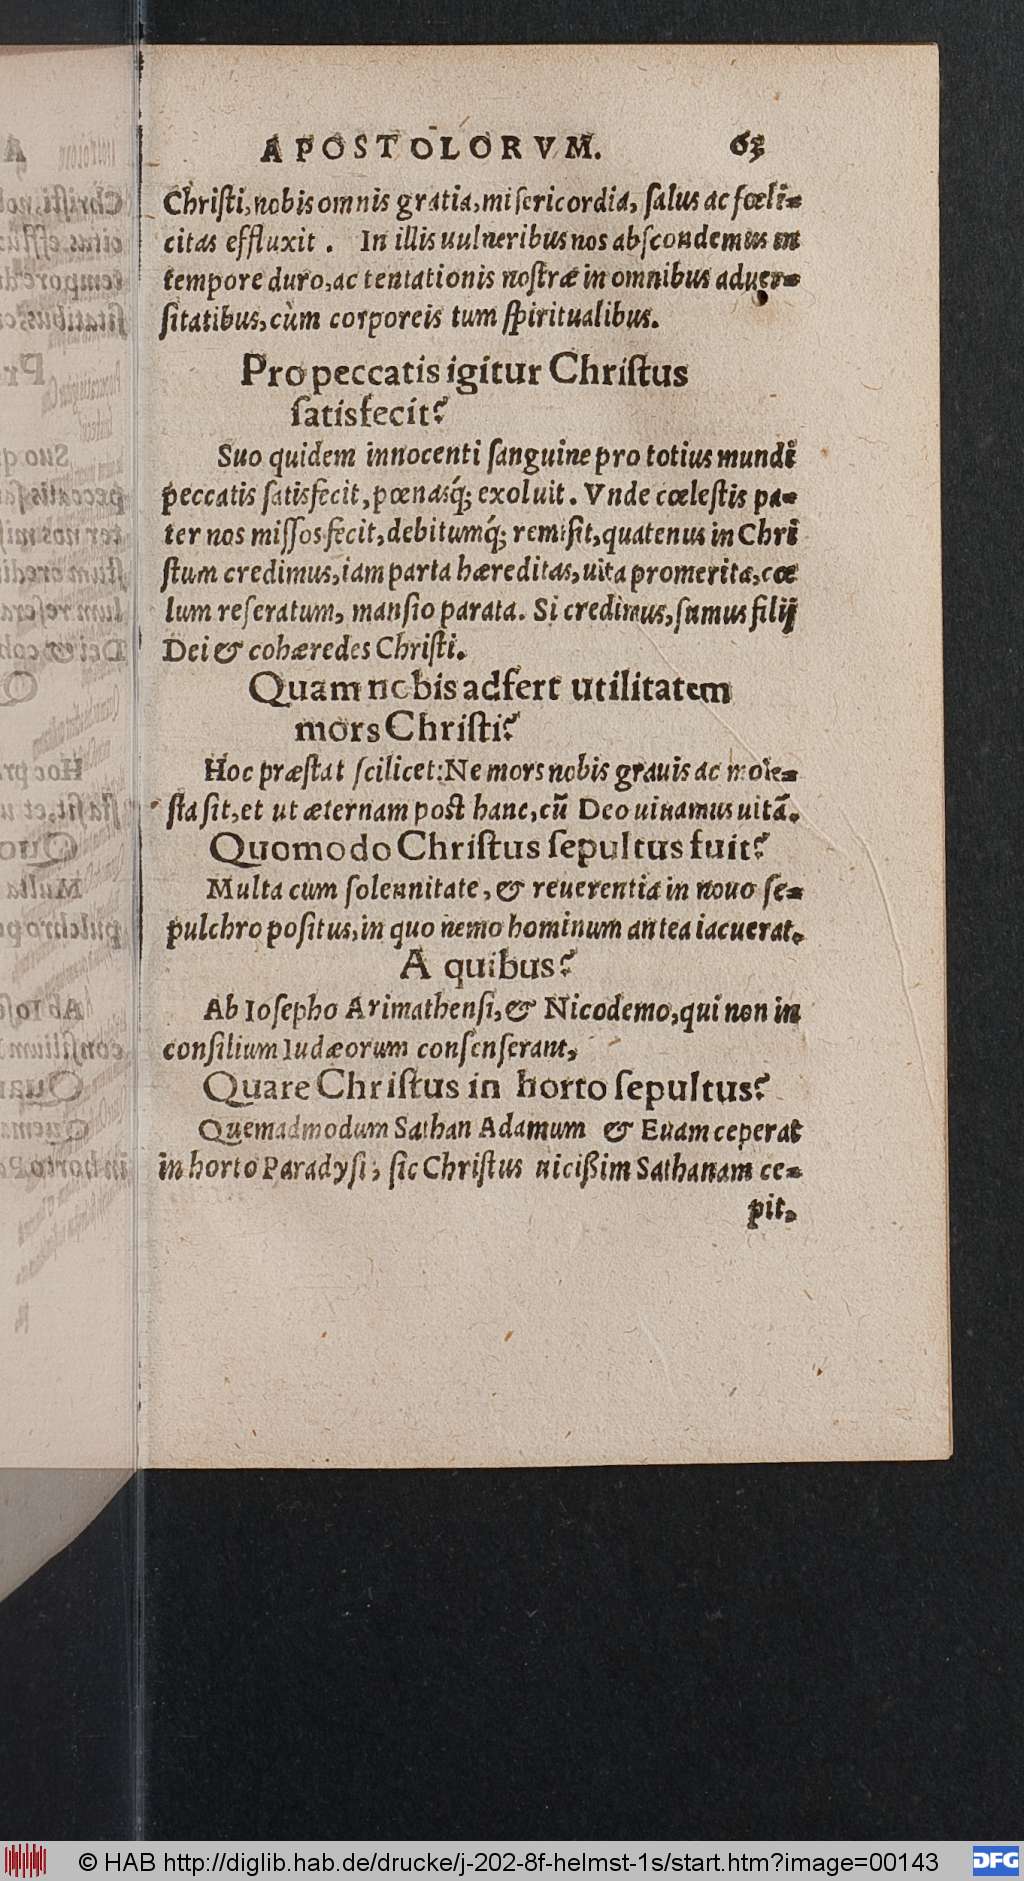 APOSTOLORVM. 63
Chriſti, nobis omnis gratia, miſericordia, ſalus ac fœli-
citas effluxit. In illis uulneribus nos abſcondemus in
tempore duro, ac tentationis noſtræ in omnibus aduer-
ſitatibus, cùm corporeis tum ſpiritualibus.
Pro peccatis igitur Chriſtus
ſatisfecit?
Suo quidem innocenti ſanguine pro totius mundi
peccatis ſatisfecit, pœnasq́; exoluit. Vnde cœleſtis pa-
ter nos miſſos fecit, debitumq́; remiſit, quatenus in Chri
ſtum credimus, iam parta hæreditas, uita promerita, cœ
lum reſeratum, manſio parata. Si credimus, ſumus filij
Dei & cohæredes Chriſti.
Quam nobis adfert utilitatem
mors Chriſti?
Hoc præſtat ſcilicet: Ne mors nobis grauis ac mole-
ſta ſit, et ut æternam poſt hanc, cũ Deo uiuamus uitã.
Quomodo Chriſtus ſepultus fuit?
Multa cum ſolennitate, & reuerentia in nouo ſe-
pulchro poſitus, in quo nemo hominum antea iacuerat.
A quibus?
Ab Ioſepho Arimathenſi, & Nicodemo, qui non in
conſilium Iudæorum conſenſerant,
Quare Chriſtus in horto ſepultus?
Quemadmodum Sathan Adamum & Euam ceperat
in horto Paradyſi, ſic Chriſtus uicißim Sathanam ce-
pit.
© HAB http://diglib.hab.de/drucke/j-202-8f-helmst-1s/start.htm?image=00143 DFG